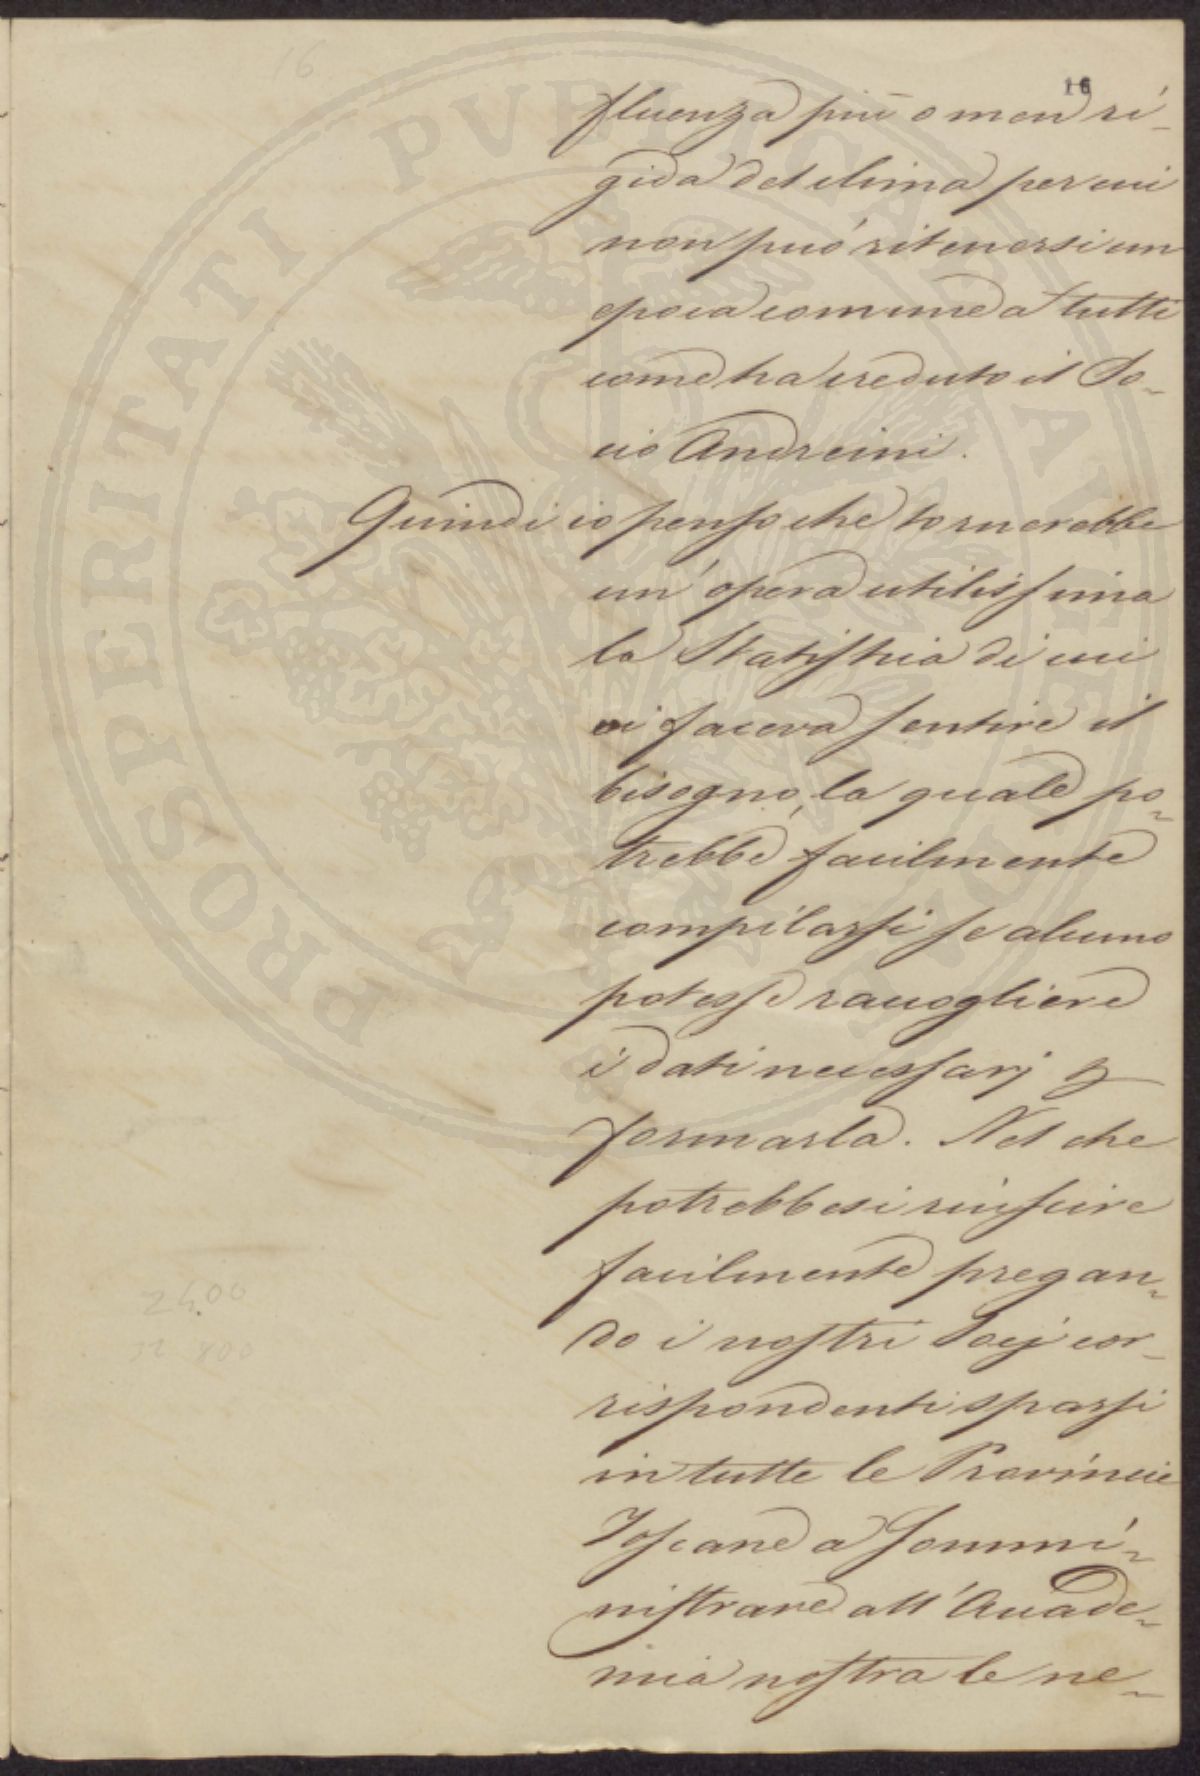 16
16
fluenza più o meno ri-
gida del clima per cui
non può ritenersi un
epoca comune a tutti
come ha creduto il So-
cio Andreini.
Quindi io penso che tornerebbe
un' opera utilissima
la Statistica di cui
ci faceva sentire il
bisogno, la quale po-
trebbe facilmente
compilarsi se alcuno
potesse raccogliere
i dati necessarj p
formarla. Nel che
potrebbesi riuscire
facilmente pregan-
do i nostri Socj cor-
rispondenti sparsi
in tutte le Provincie
Toscane a sommi-
nistrare all' Accade-
mia nostra le ne-
2400
PROSPERITATI PVBLICAE AVGENDAE